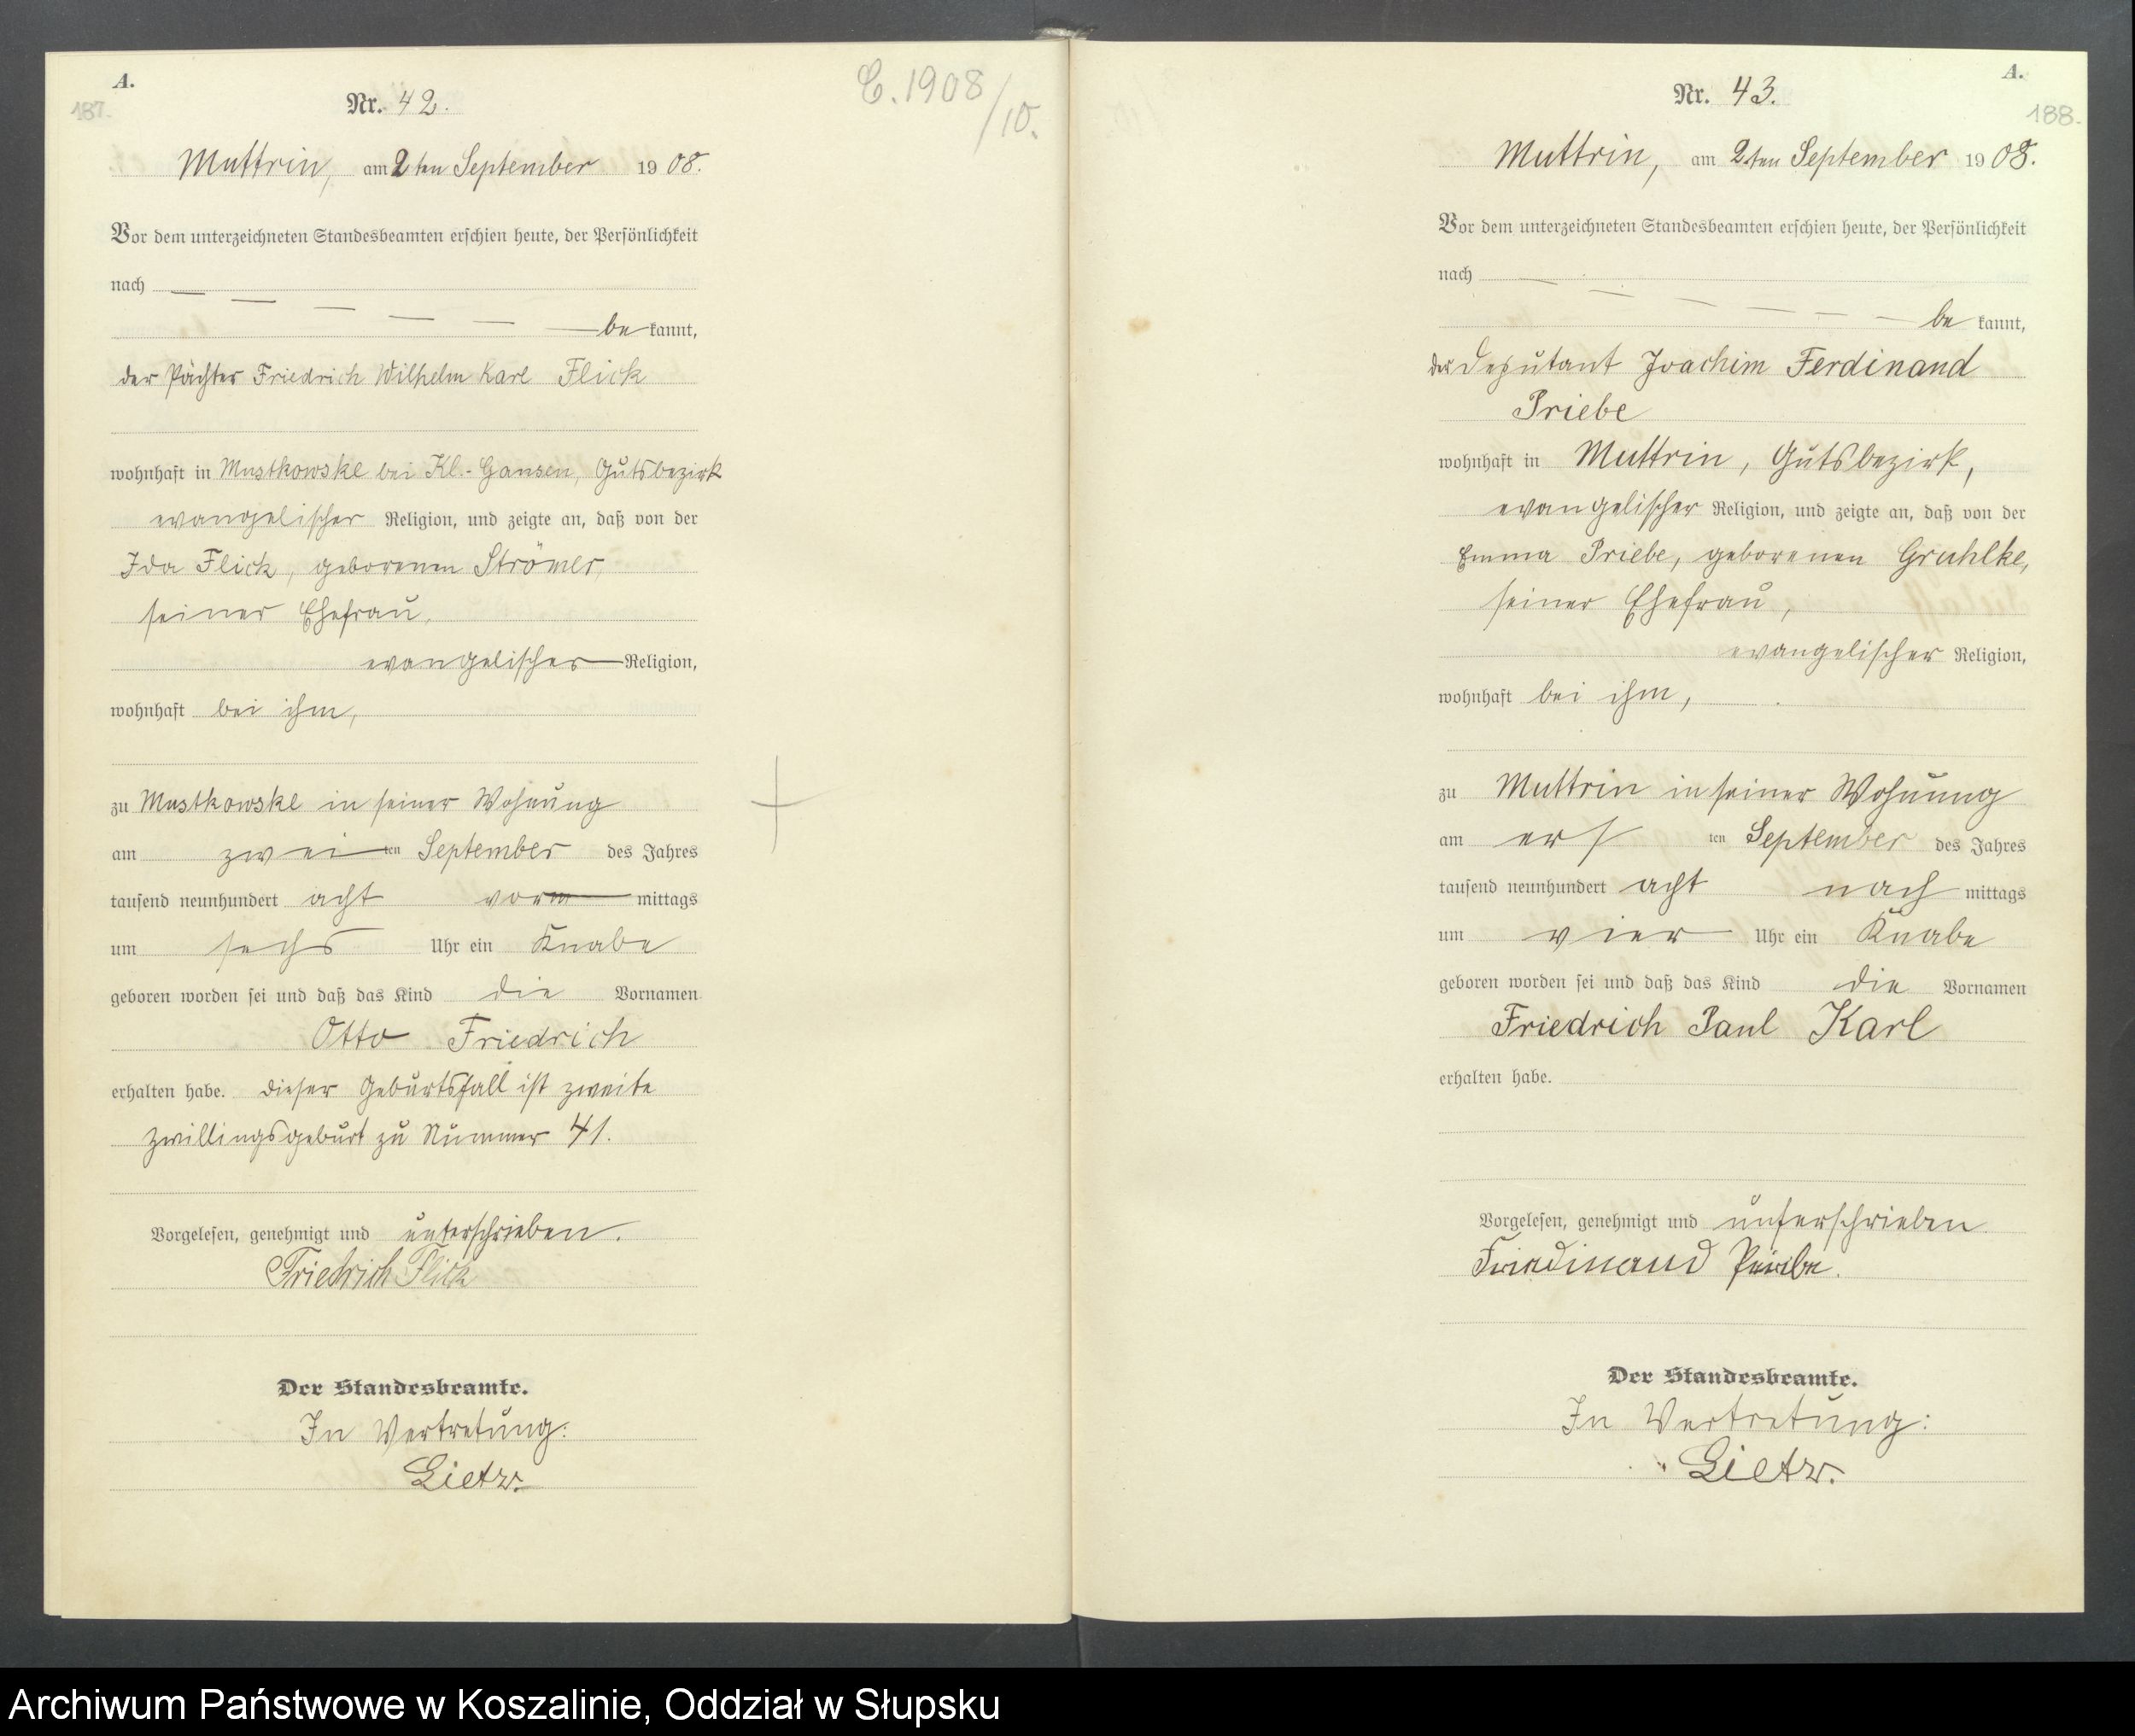 A.
187.
Nr. 42.
E. 1908/10.
Muttrin, am 2ten September 1908.
Vor dem unterzeichneten Standesbeamten erschien heute, der Persönlichkeit
nach
be kannt,
der Pächter Friedrich Wilhelm Karl Flick
wohnhaft in Mustkowske bei Kl.-Gansen, Gutsbezirk
evangelischer Religion, und zeigte an, daß von der
Ida Flick, geborenen Strömer,
seiner Ehefrau,
evangelischer Religion,
wohnhaft bei ihm,
zu Mustkowske in seiner Wohnung
am zwei ten September des Jahres
tausend neunhundert acht vorm mittags
um sechs Uhr ein Knabe
geboren worden sei und daß das Kind die Vornamen
Otto Friedrich
erhalten habe. Dieser Geburtsfall ist zweite
Zwillingsgeburt zu Nummer 41.
Vorgelesen, genehmigt und unterschrieben.
Friedrich Flick
Der Standesbeamte.
In Vertretung:
Lietz.
A.
188.
Nr. 43.
Muttrin, am 2ten September 1908.
Vor dem unterzeichneten Standesbeamten erschien heute, der Persönlichkeit
nach
be kannt,
der Deputant Joachim Ferdinand
Priebe
wohnhaft in Muttrin, Gutsbezirk,
evangelischer Religion, und zeigte an, daß von der
Emma Priebe, geborenen Gruhlke,
seiner Ehefrau,
evangelischer Religion,
wohnhaft bei ihm,
zu Muttrin in seiner Wohnung
am ers ten September des Jahres
tausend neunhundert acht nach mittags
um vier Uhr ein Knabe
geboren worden sei und daß das Kind die Vornamen
Friedrich Paul Karl
erhalten habe.
Vorgelesen, genehmigt und unterschrieben
Ferdinand Priebe.
Der Standesbeamte.
In Vertretung:
Lietz.
Archiwum Państwowe w Koszalinie, Oddział w Słupsku